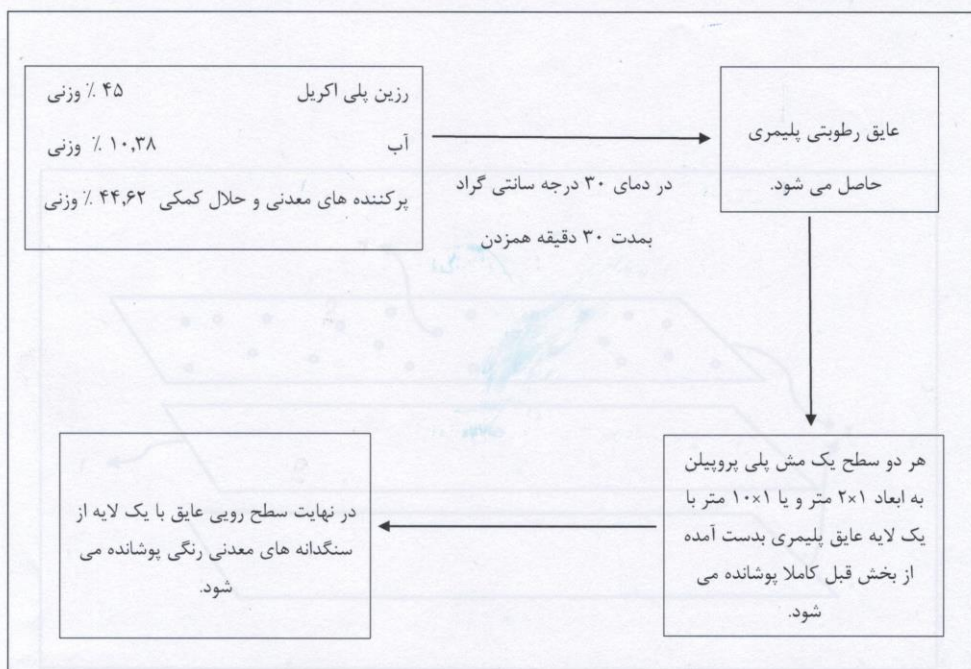 رزین پلی اکریل ۴۵ ٪ وزنی
آب ۱۰,۳۸ ٪ وزنی
پرکننده های معدنی و حلال کمکی ۴۴,۶۲ ٪ وزنی
در دمای ۳۰ درجه سانتی گراد
بمدت ۳۰ دقیقه همزدن
عایق رطوبتی پلیمری
حاصل می شود.
هر دو سطح یک مش پلی پروپیلن
به ابعاد ۱×۲ متر و یا ۱×۱۰ متر با
یک لایه عایق پلیمری بدست آمده
از بخش قبل کاملا پوشانده می
شود.
در نهایت سطح رویی عایق با یک لایه از
سنگدانه های معدنی رنگی پوشانده می
شود.